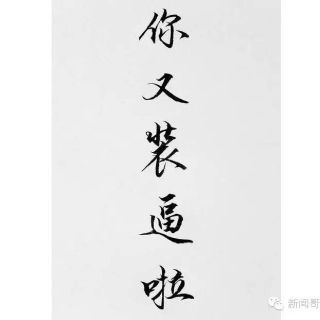 你又装逼啦
新闻哥